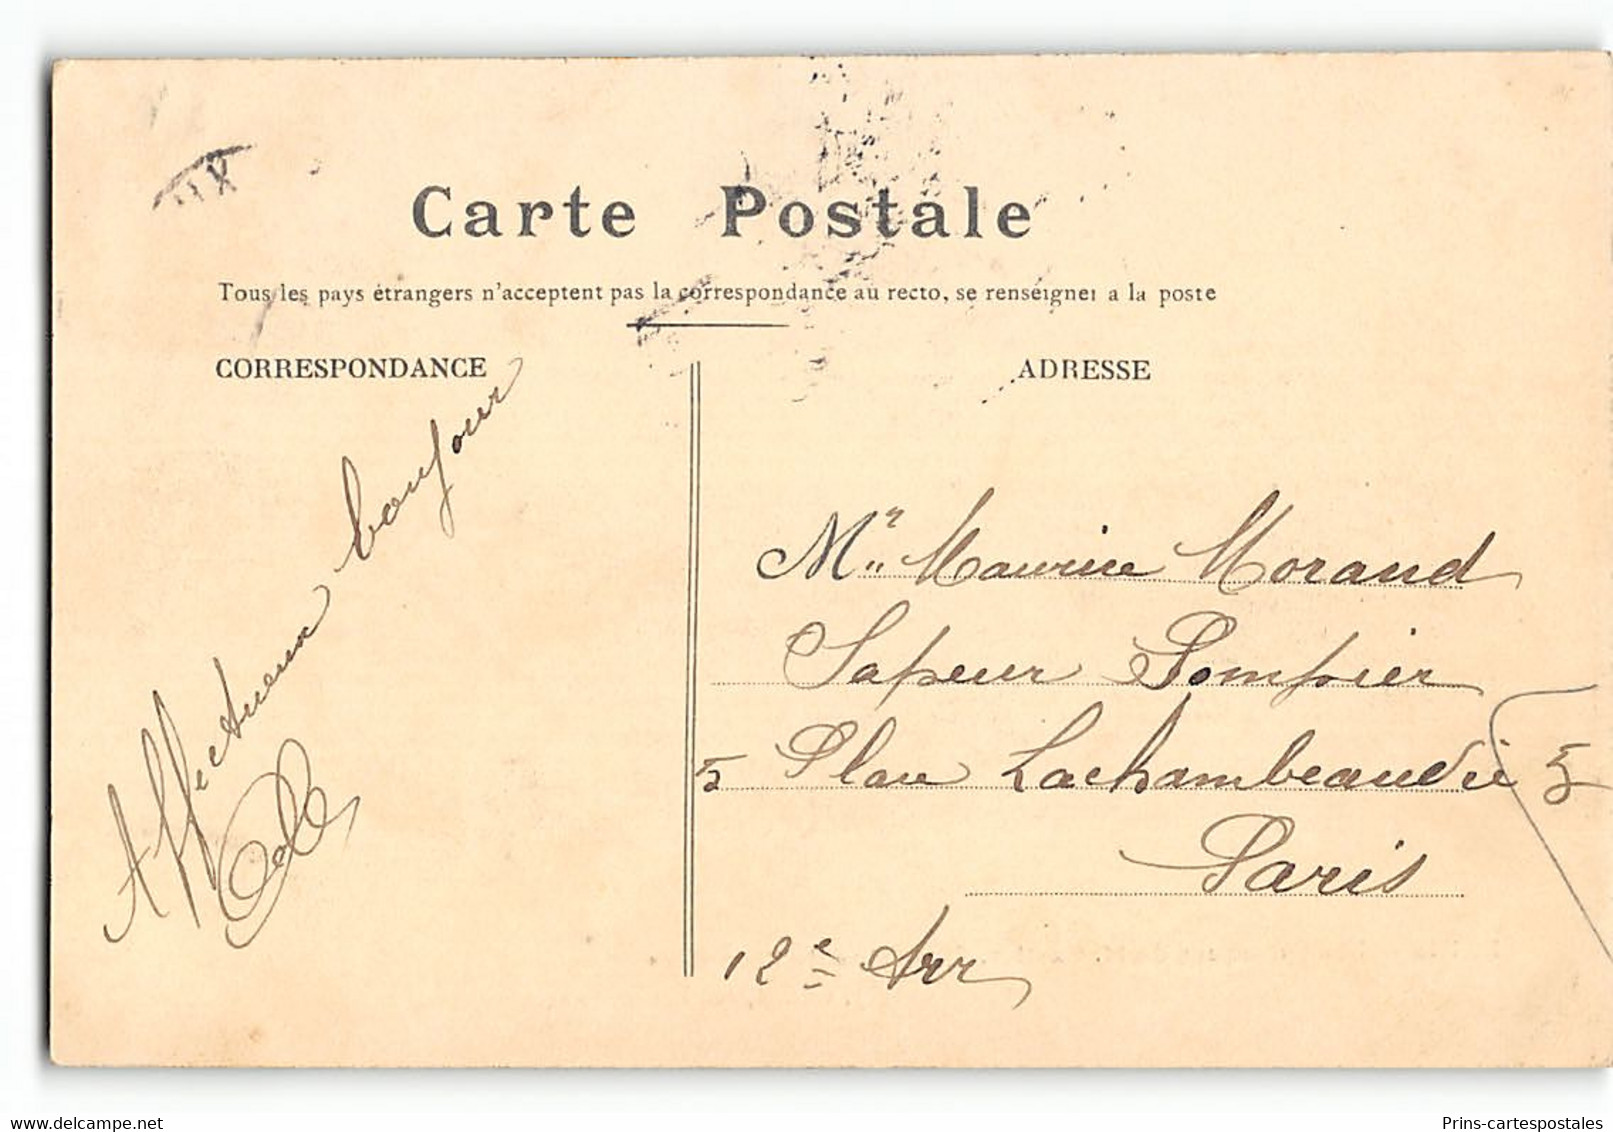 Carte Postale
Tous les pays étrangers n'acceptent pas la correspondance au recto, se renseigner a la poste
CORRESPONDANCE
ADRESSE
Affectueux bonjour
Mr Maurice Morand
Sapeur Pompier
5 Place Lachambeaudie 5
Paris
12e Arr
www.delcampe.net
Prins-cartespostales